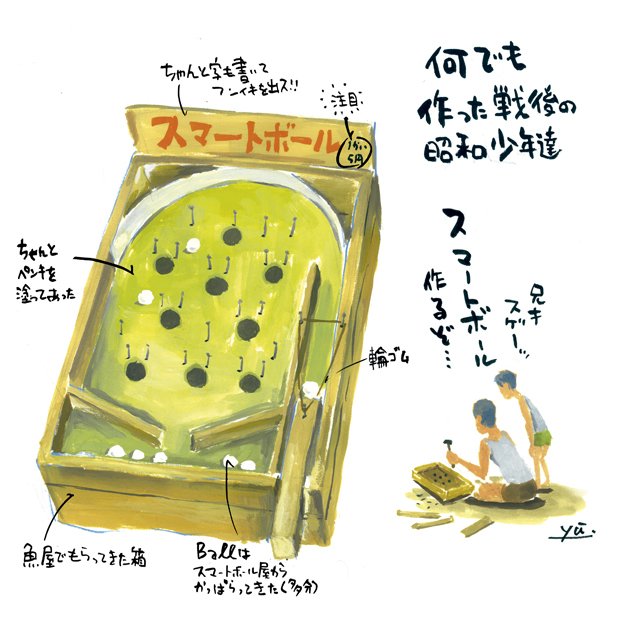 何でも
作った戦後の
昭和少年達
ちゃんと字も書いて
フンイキを出ス!!
注目
スマートボール
1かい
5円
スマートボール
作るぞ…
兄キ
スゲーッ
ちゃんと
ペンキを
塗ってあった
輪ゴム
魚屋でもらってきた箱
Ballは
スマートボール屋から
かっぱらってきた(多分)
yū.